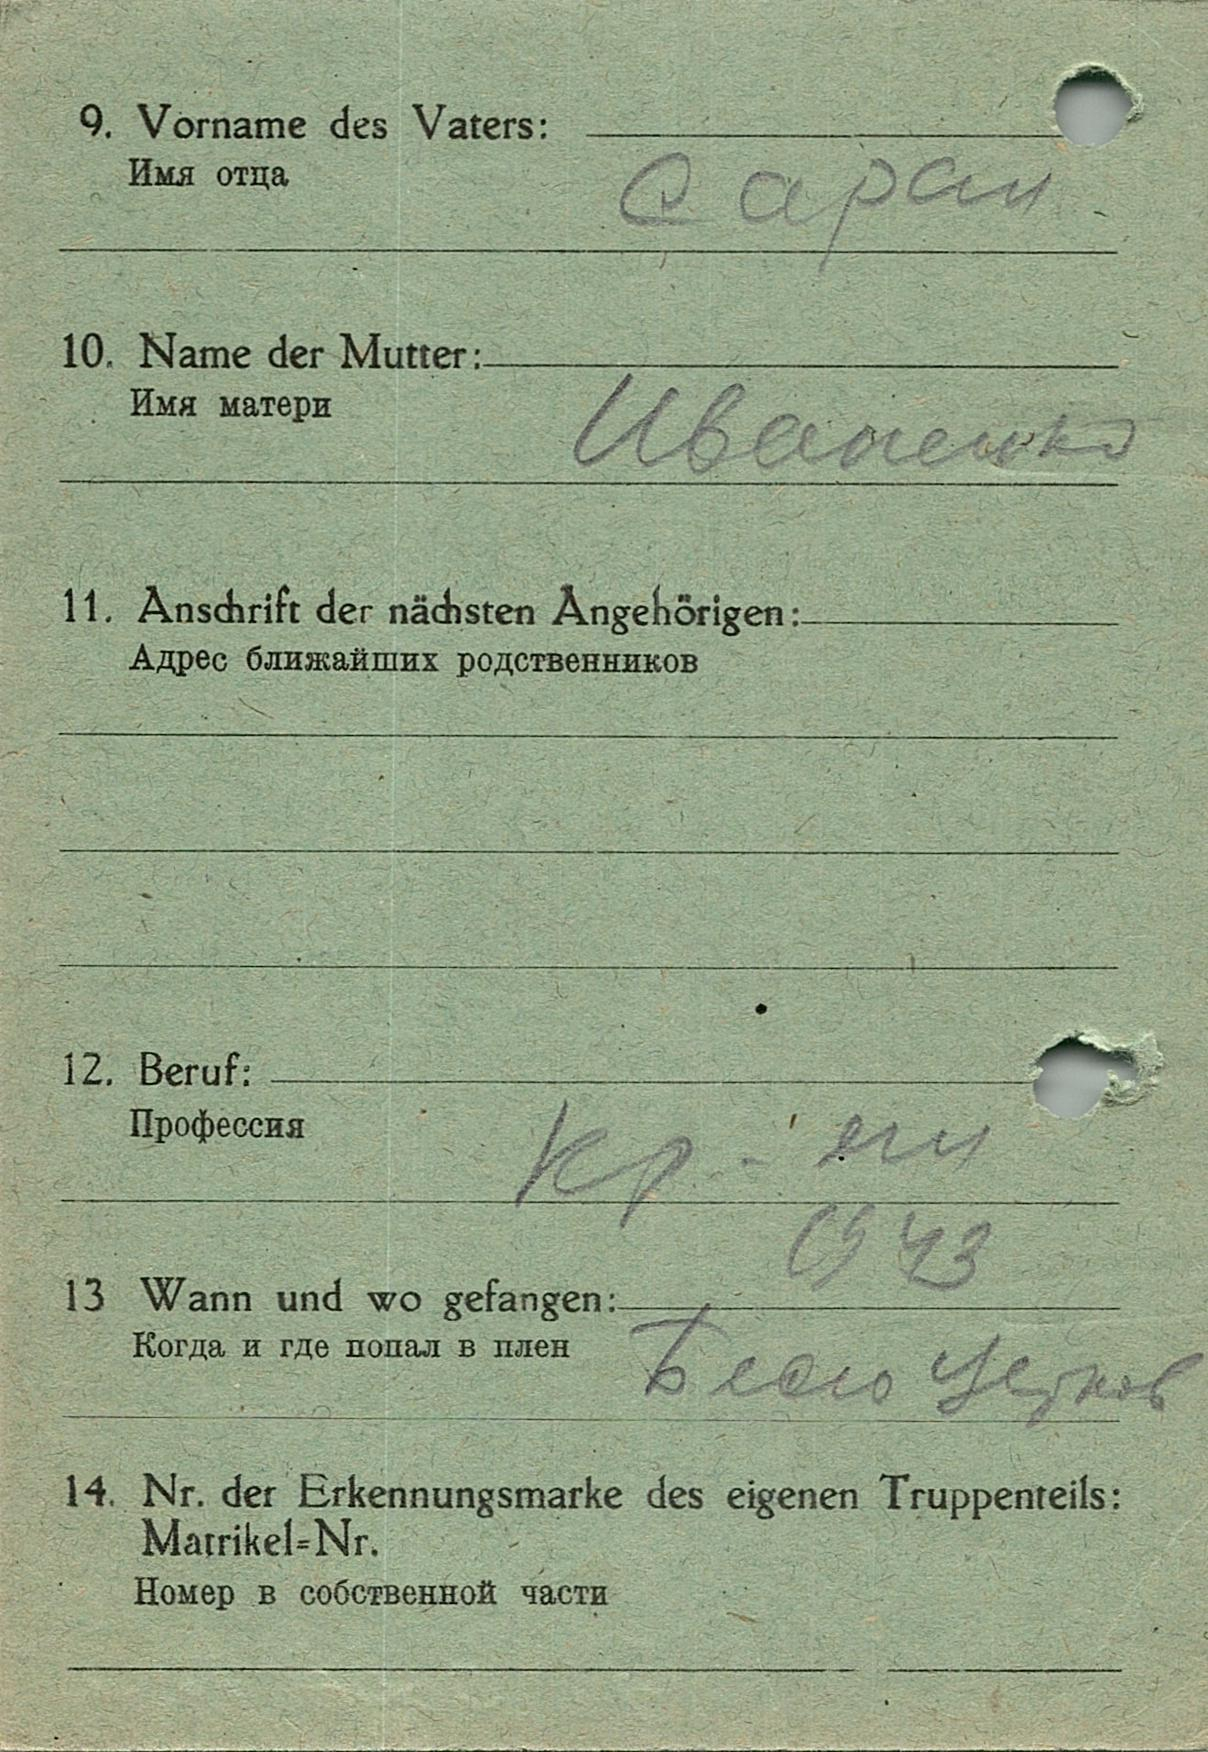 9. Vorname des Vaters:
Имя отца
10. Name der Mutter:
Имя матери
Иваненко
11. Anschrift der nächsten Angehörigen:
Адрес ближайших родственников
12. Beruf:
Профессия
Кр-
1943
13 Wann und wo gefangen:
Когда и где попал в плен
14. Nr. der Erkennungsmarke des eigenen Truppenteils:
Matrikel=Nr.
Номер в собственной части